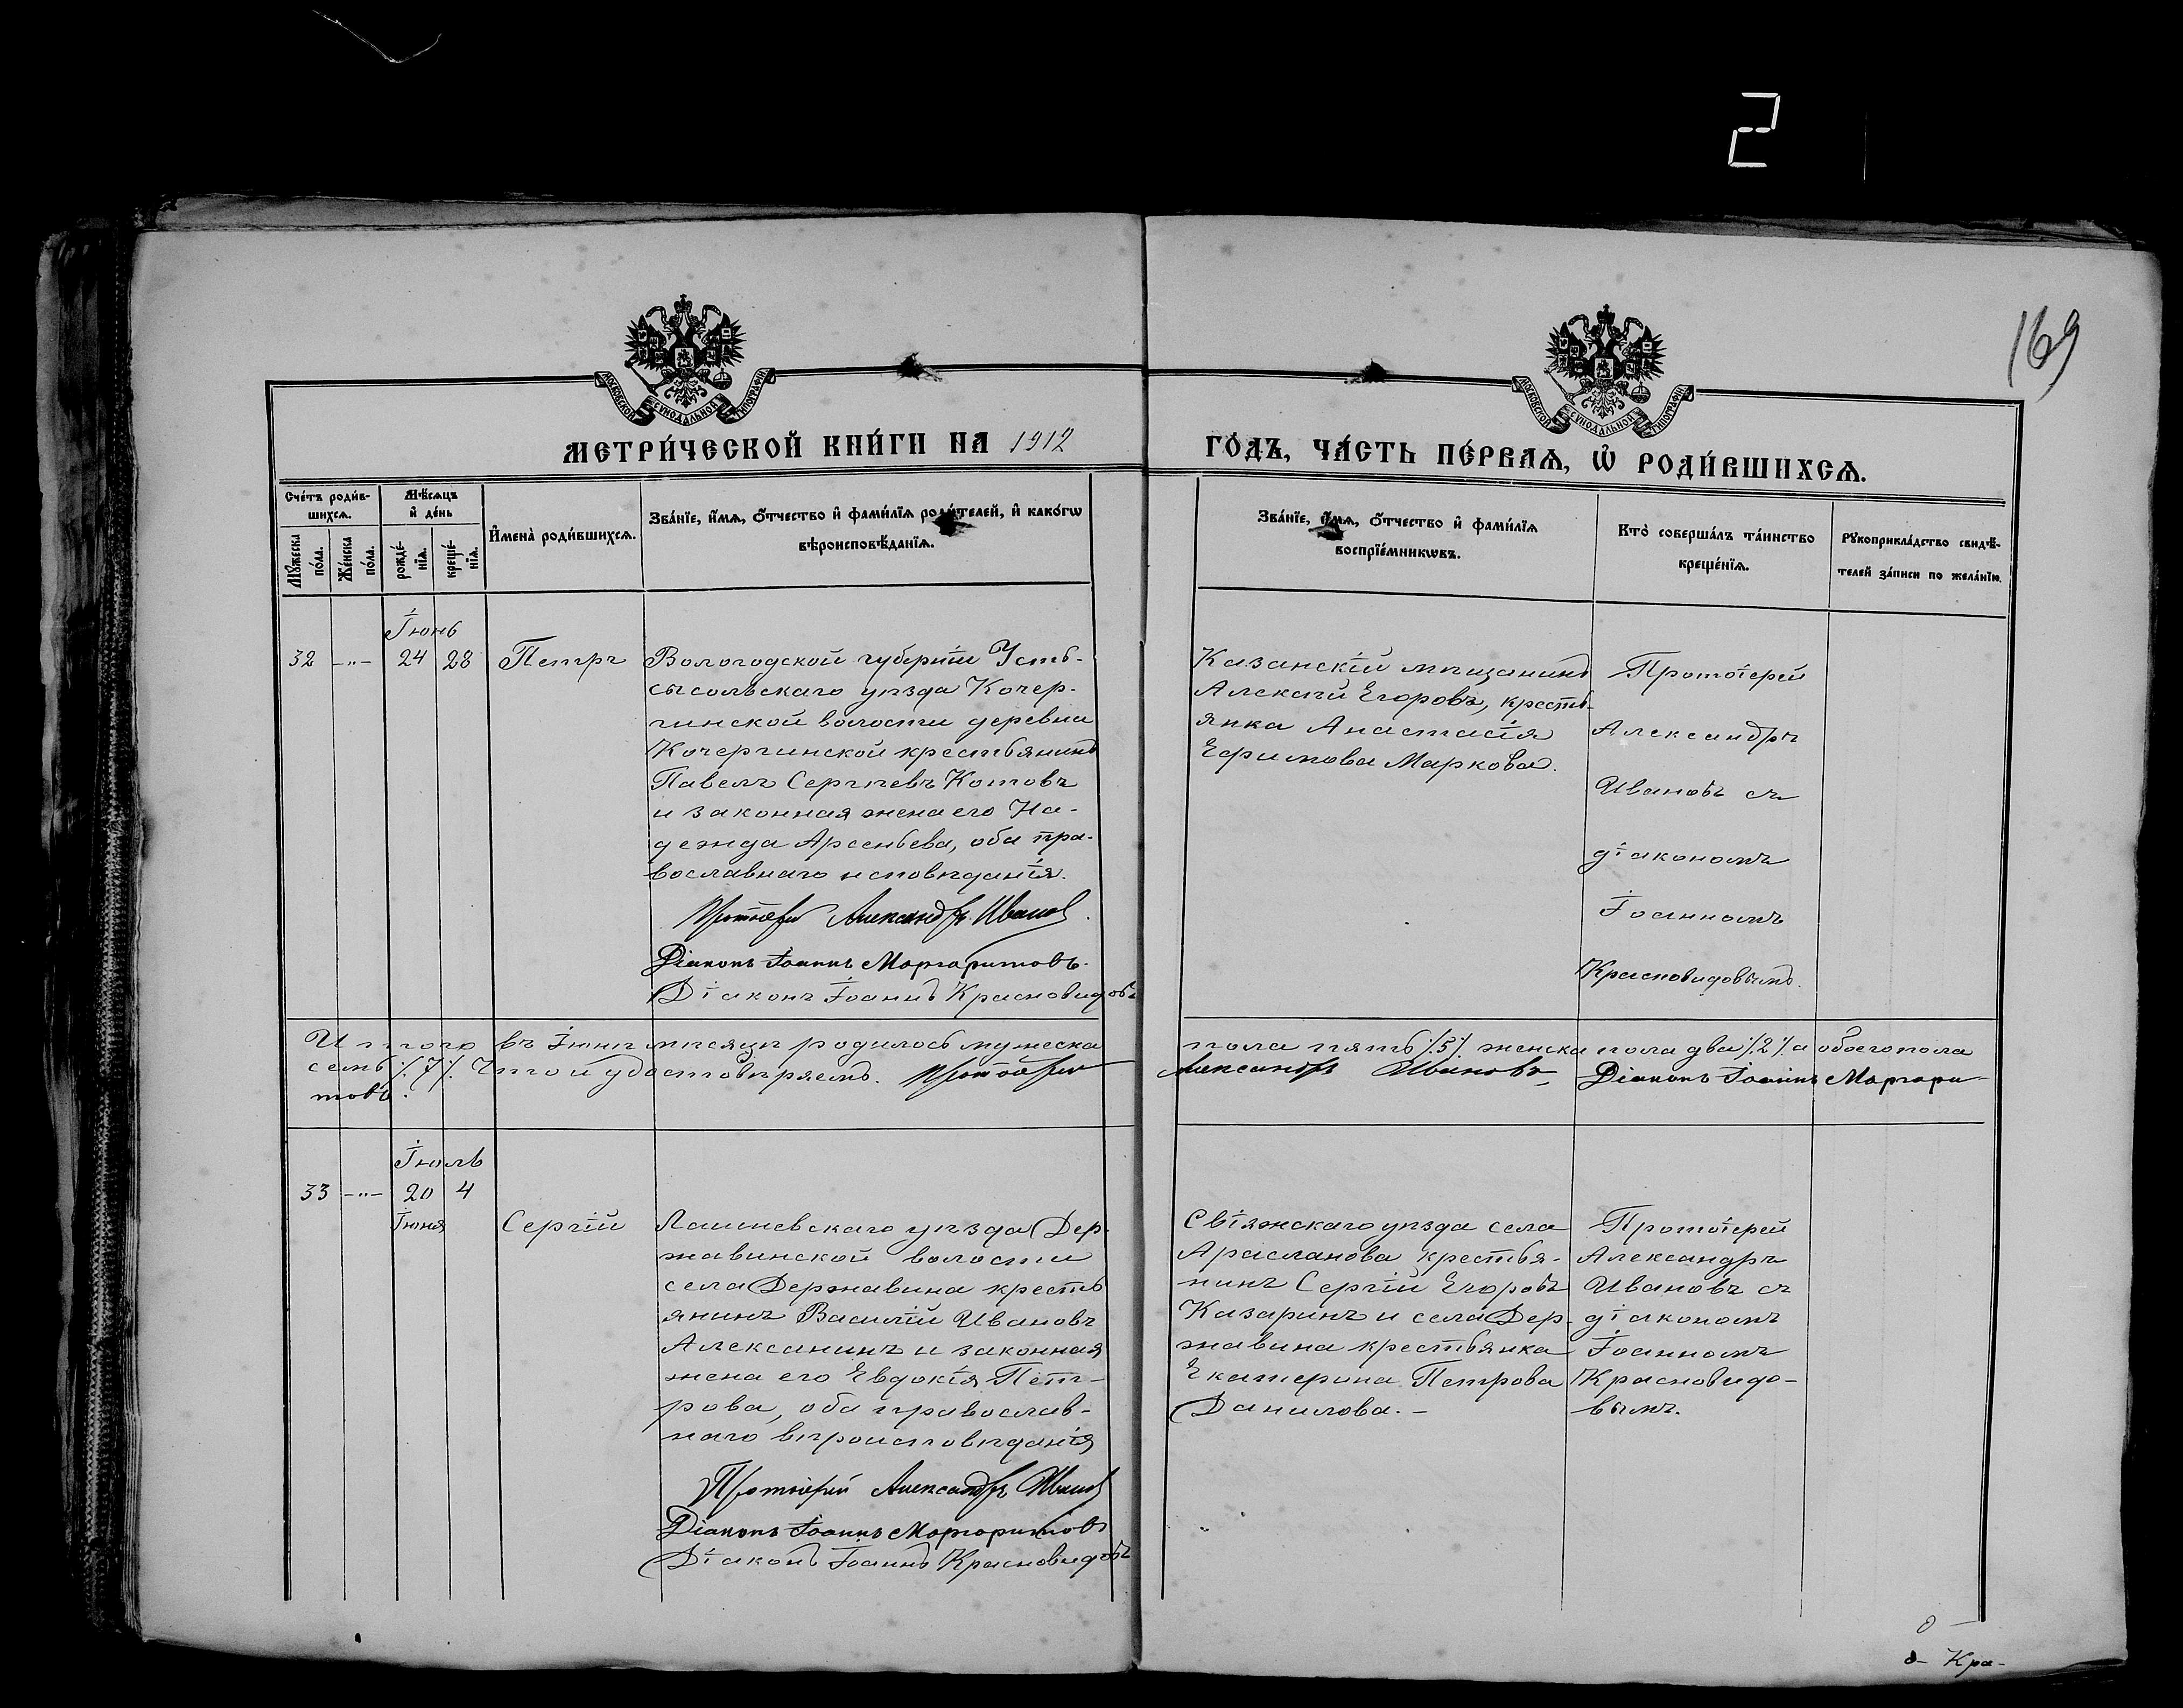 2
169
МОСКОВСКОЙ СѴНОДАЛЬНОЙ ТИПОГРАФІИ
МОСКОВСКОЙ СѴНОДАЛЬНОЙ ТИПОГРАФІИ
МЕТРИ́ЧЕСКОЙ КНИ́ГИ НА 1912
ГО́ДЪ, ЧА́СТЬ ПЕ́РВАѦ, Ѡ҆ РОДИ́ВШИХСѦ.
Сче́тъ роди́в-
шихсѧ.
Мѣ́сѧцъ
и҆ де́нь
Мꙋ́жеска
по́ла.
Же́нска
по́ла.
рожде́-
нїѧ.
креще́-
нїѧ.
И҆мена̀ роди́вшихсѧ.
Зва́нїе, и҆́мѧ, ѻ҆́тчество и҆ фами́лїѧ роди́телей, и҆ како́гѡ
вѣроисповѣ́данїѧ.
Зва́нїе, и҆́мѧ, ѻ҆́тчество и҆ фами́лїѧ
воспрїе́мникѡвъ.
Кто̀ соверша́лъ та́инство
креще́нїѧ.
Рꙋкоприкла́дство свидѣ́-
телей за́писи по жела́нїю.
Іюнь
32 -"- 24 28 Петръ
Вологодской губерніи Усть-
сысольскаго уѣзда Кочер-
гинской волости деревни
Кочергинской крестьянинъ
Павелъ Сергѣевъ Котовъ
и законная жена его На-
дежда Арсеньева, оба пра-
вославнаго исповѣданія.
Протоіерей Александръ Ивановъ
Діаконъ Іоаннъ Маргаритовъ.
Діаконъ Іоаннъ Красновидовъ
Казанскій мѣщанинъ
Алексѣй Егоровъ, кресть-
янка Анастасія
Ефимова Маркова.
Протоіерей
Александръ
Ивановъ съ
діакономъ
Іоанномъ
Красновидовымъ.
Итого въ Іюнѣ мѣсяцѣ родилось мужеска пола пять /.5/. женска пола два /.2/. а обоего пола
семь /.7/. Что и удостовѣряемъ. Протоіерей Александръ Ивановъ, Діаконъ Іоаннъ Маргари-
товъ.
Іюль
33 -"- 20 4
Іюня Сергій
Лаишевскаго уѣзда Дер-
жавинской волости
села Державина кресть
янинъ Василій Ивановъ
Алексанинъ и законная
жена его Евдокія Пет-
рова, оба православ-
наго вѣроисповѣданія
Протоіерей Александръ Ивановъ
Діаконъ Іоаннъ Маргаритовъ
Діаконъ Іоаннъ Красновидовъ
Свіяжскаго уѣзда села
Арасланова крестья-
нинъ Сергій Егоровъ
Казаринъ и села Дер-
жавина крестьянка
Екатерина Петрова
Данилова. -
Протоіерей
Александръ
Ивановъ съ
діакономъ
Іоанномъ
Красновидо-
вымъ.
Кра-